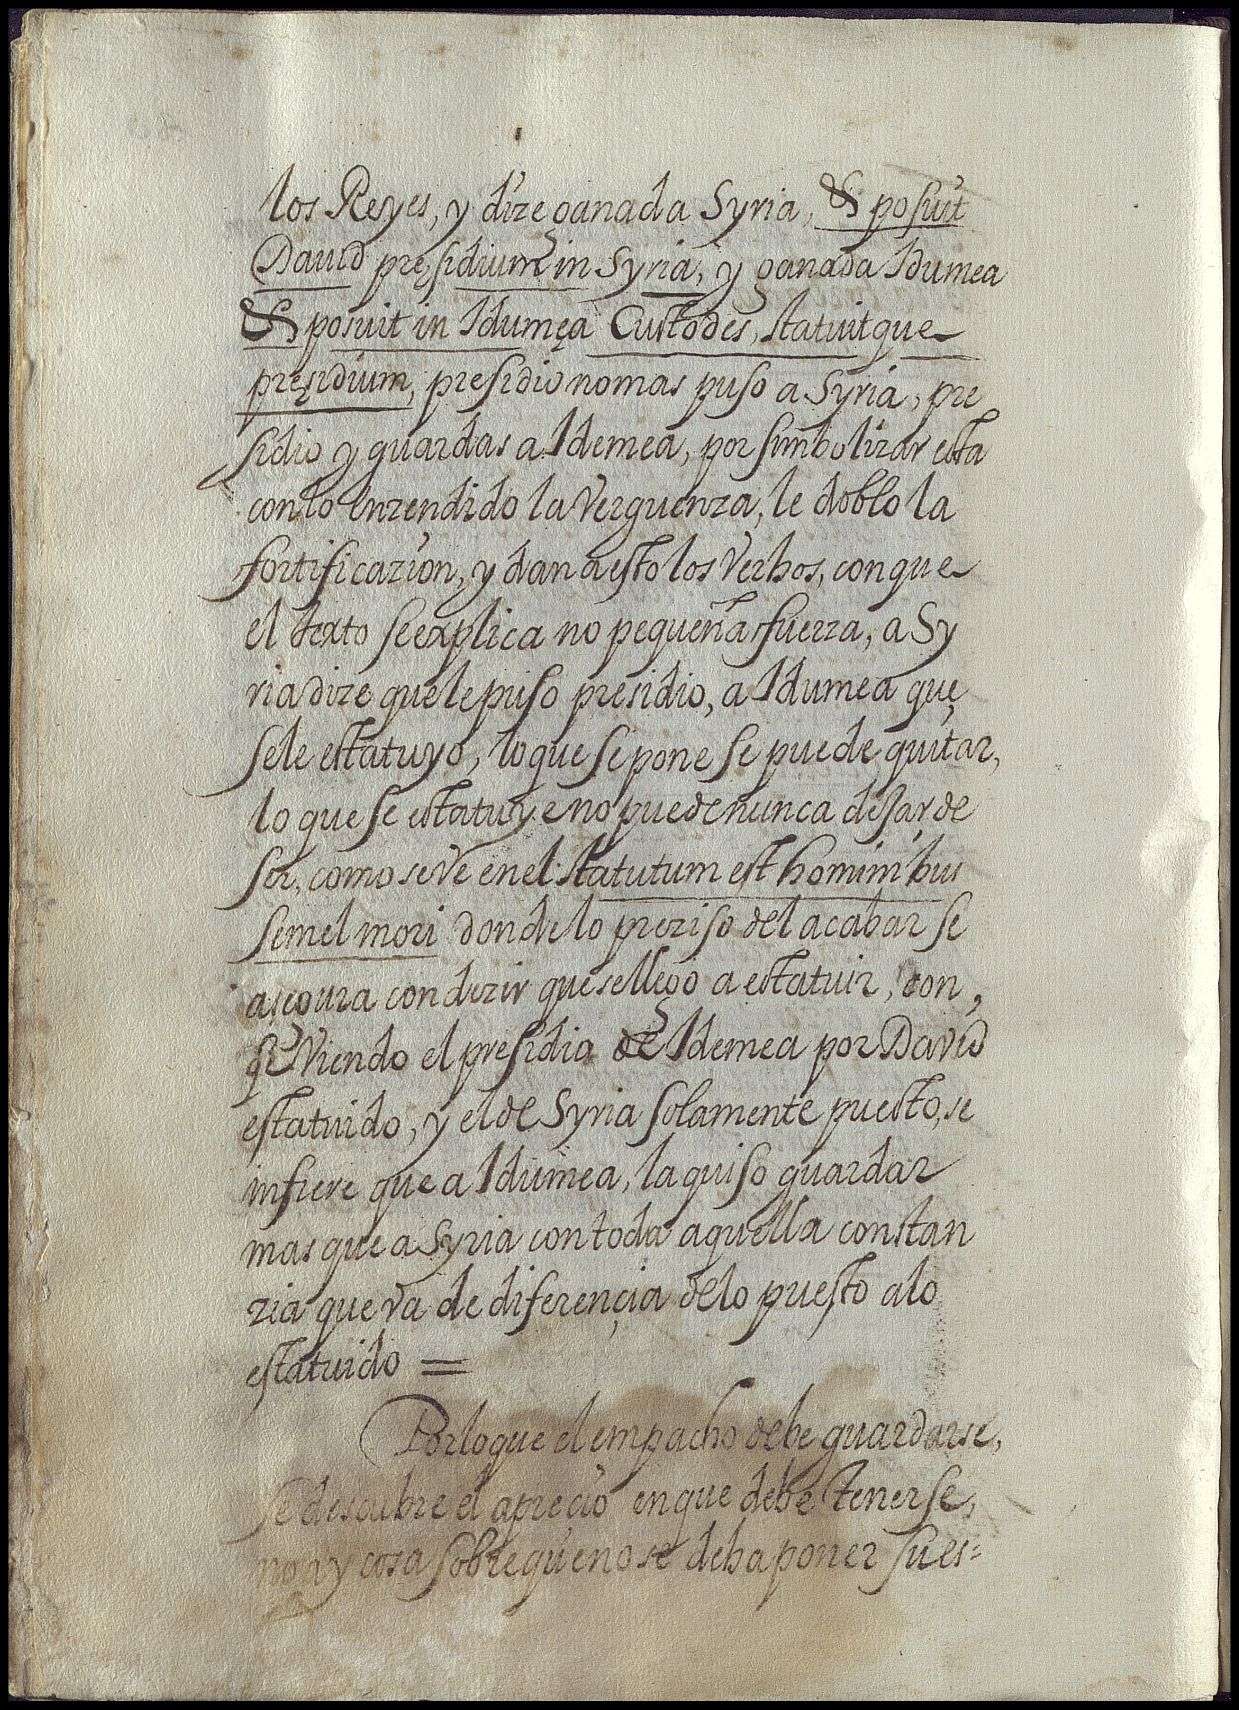 los Reyes, y dize ganada Syria, & posuit
Dauid pręsidium in Syria, y ganada Idumea
& posuit in Idumęa Custodes, statuitque
pręsidium, presidio nomas puso a Syria, pre
sidio y guardas a Idemea, por simbolizar esta
con lo enzendido la Verguenza, le doblo la
fortificazion, y dan a esto los Verbos, con que
el texto se explica no pequeña fuerza, a Sy
ria dize que le puso presidio, a Idumea que
se le estatuyo, lo que se pone se puede quitar,
lo que se estatuye no puede nunca desar de
ser, como se ve en el statutum est hominibus
semel mori donde lo preziso del acabar se
asegura con dezir que se llego a estatuir, con,
qe Viendo el presidio de Idemea por David
estatuido, y el de Syria solamente puesto, se
infiere que a Idumea, la quiso guardar
mas que a Syria con toda aquella constan
zia que va de diferençia de lo puesto a lo
estatuido =
Por lo que el empacho debe guardarse,
se descubre el aprecio en que debe tenerse,
no ay cosa sobre que no se deba poner su es=